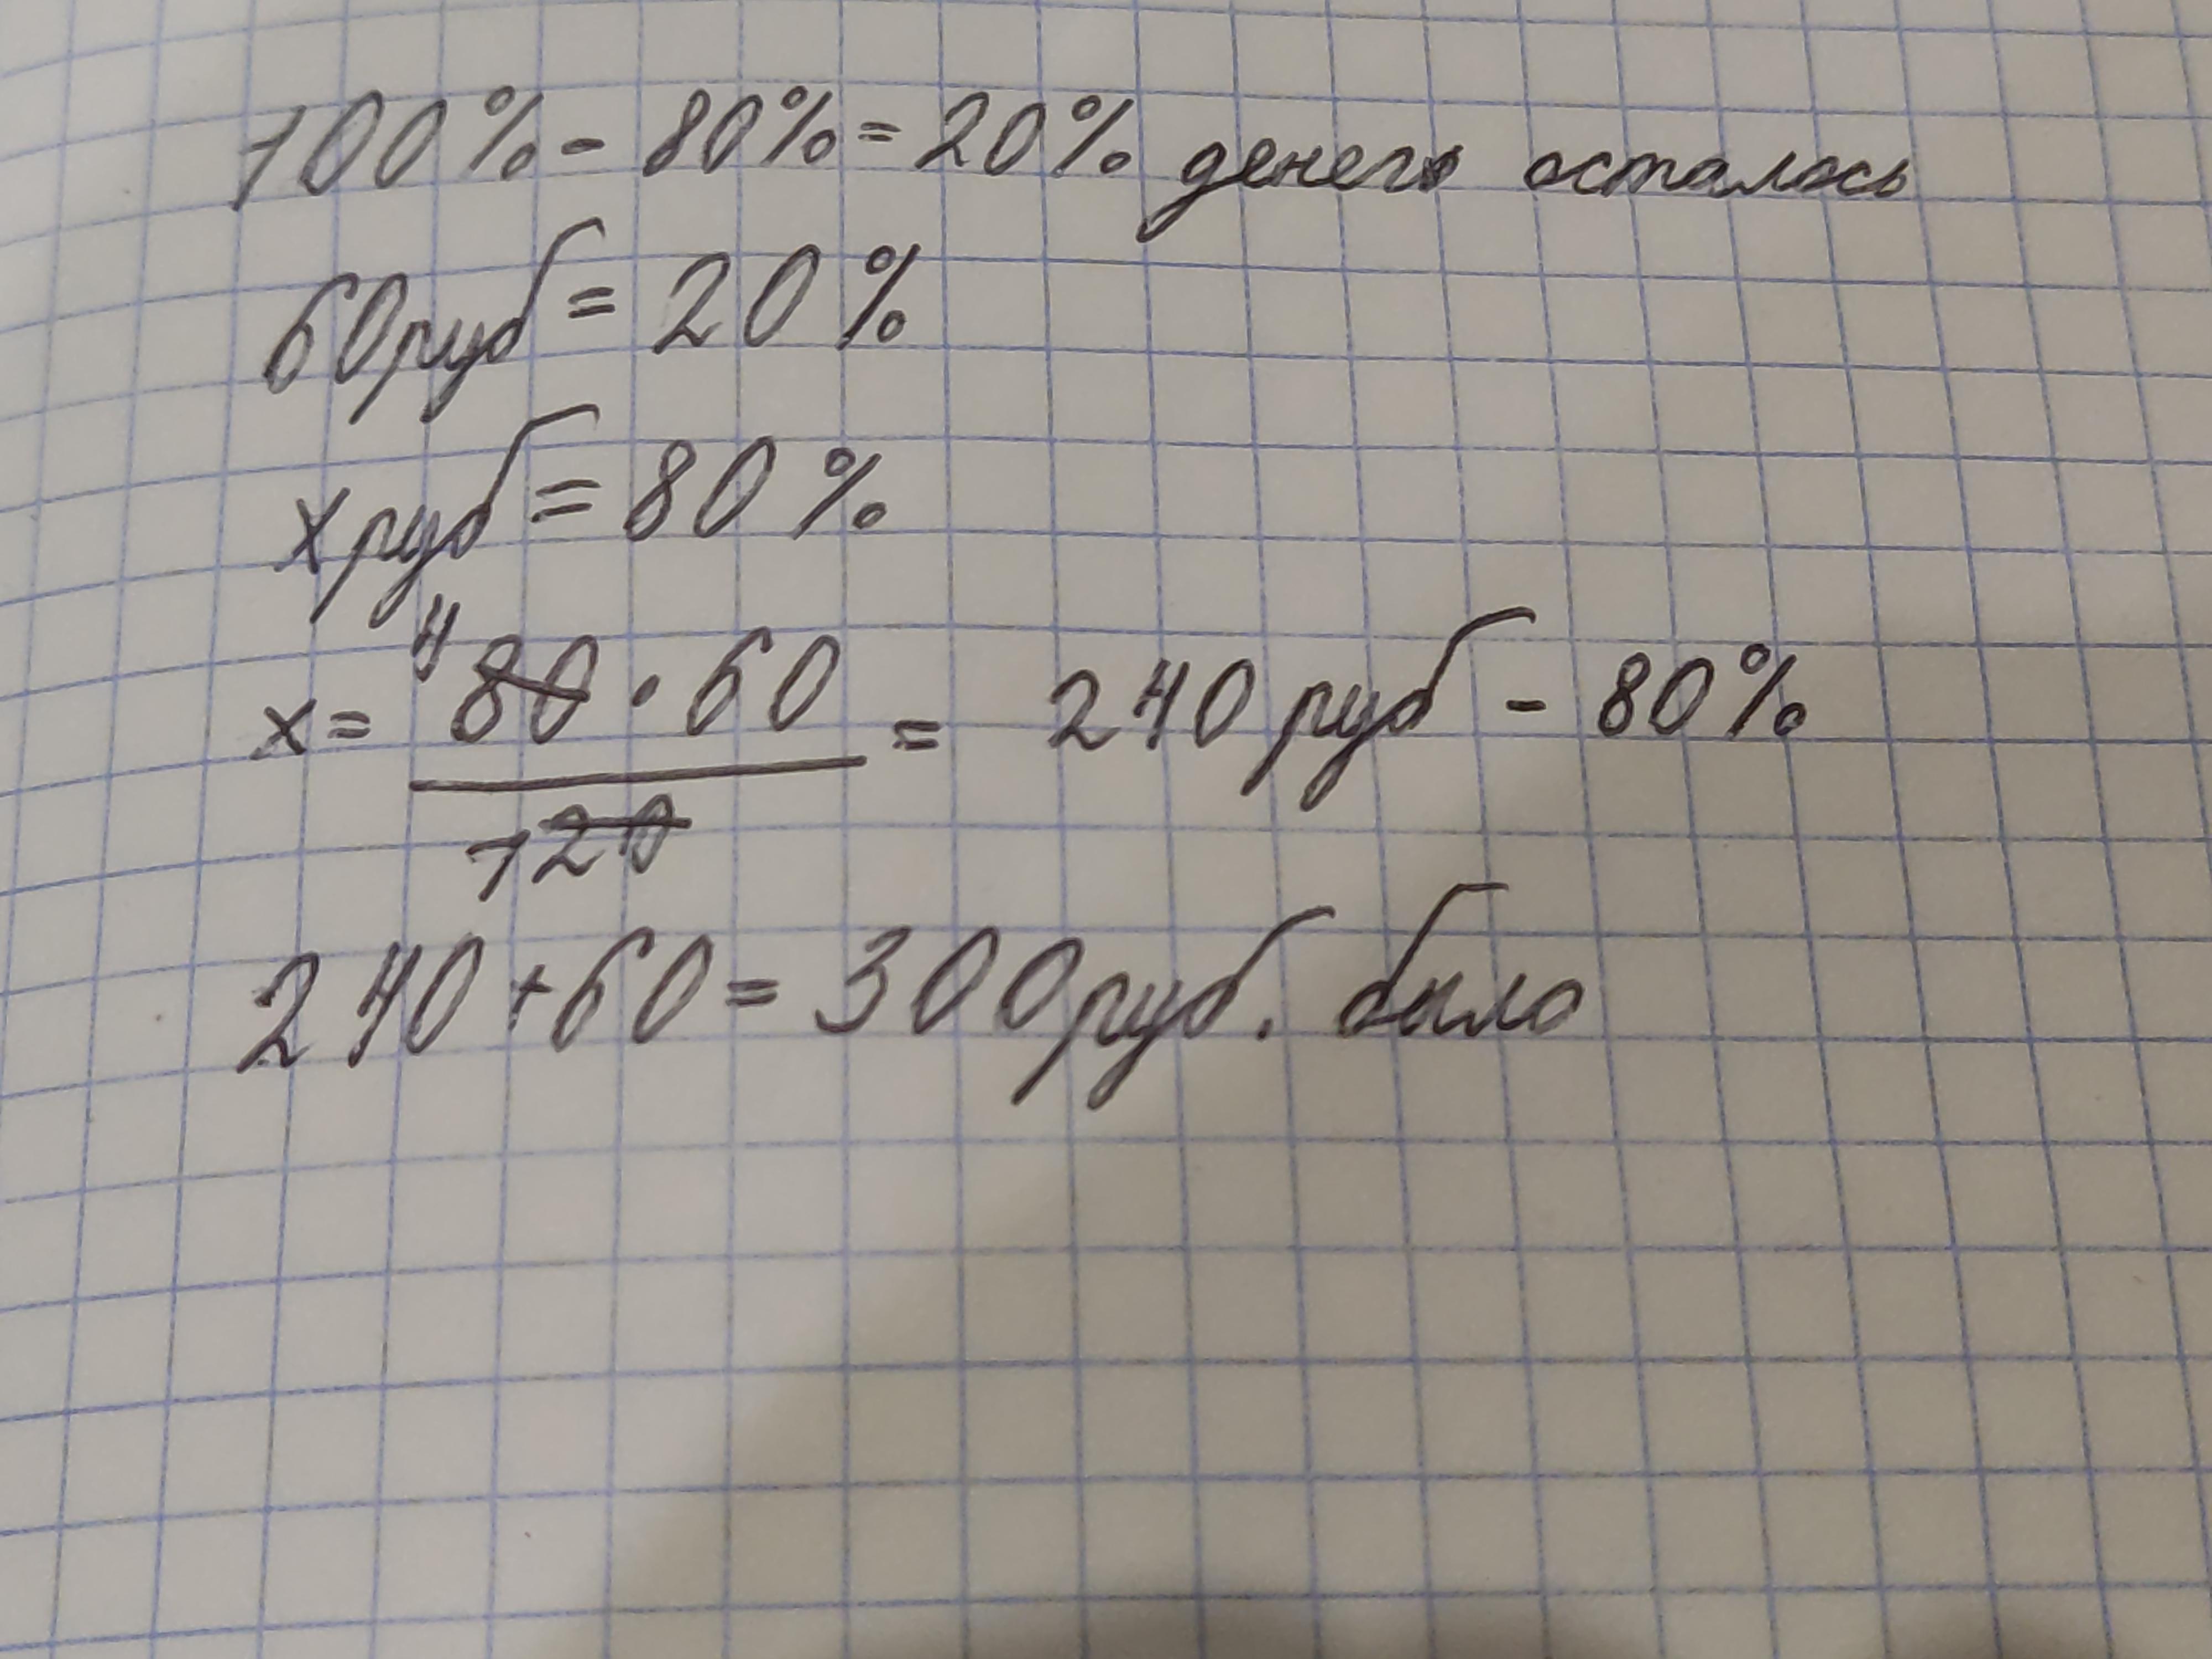 100% - 80% = 20% денег осталось
60руб = 20%
x руб = 80%
x = ⁴80 · 60 / ₁20 = 240 руб - 80%
240 + 60 = 300 руб. было